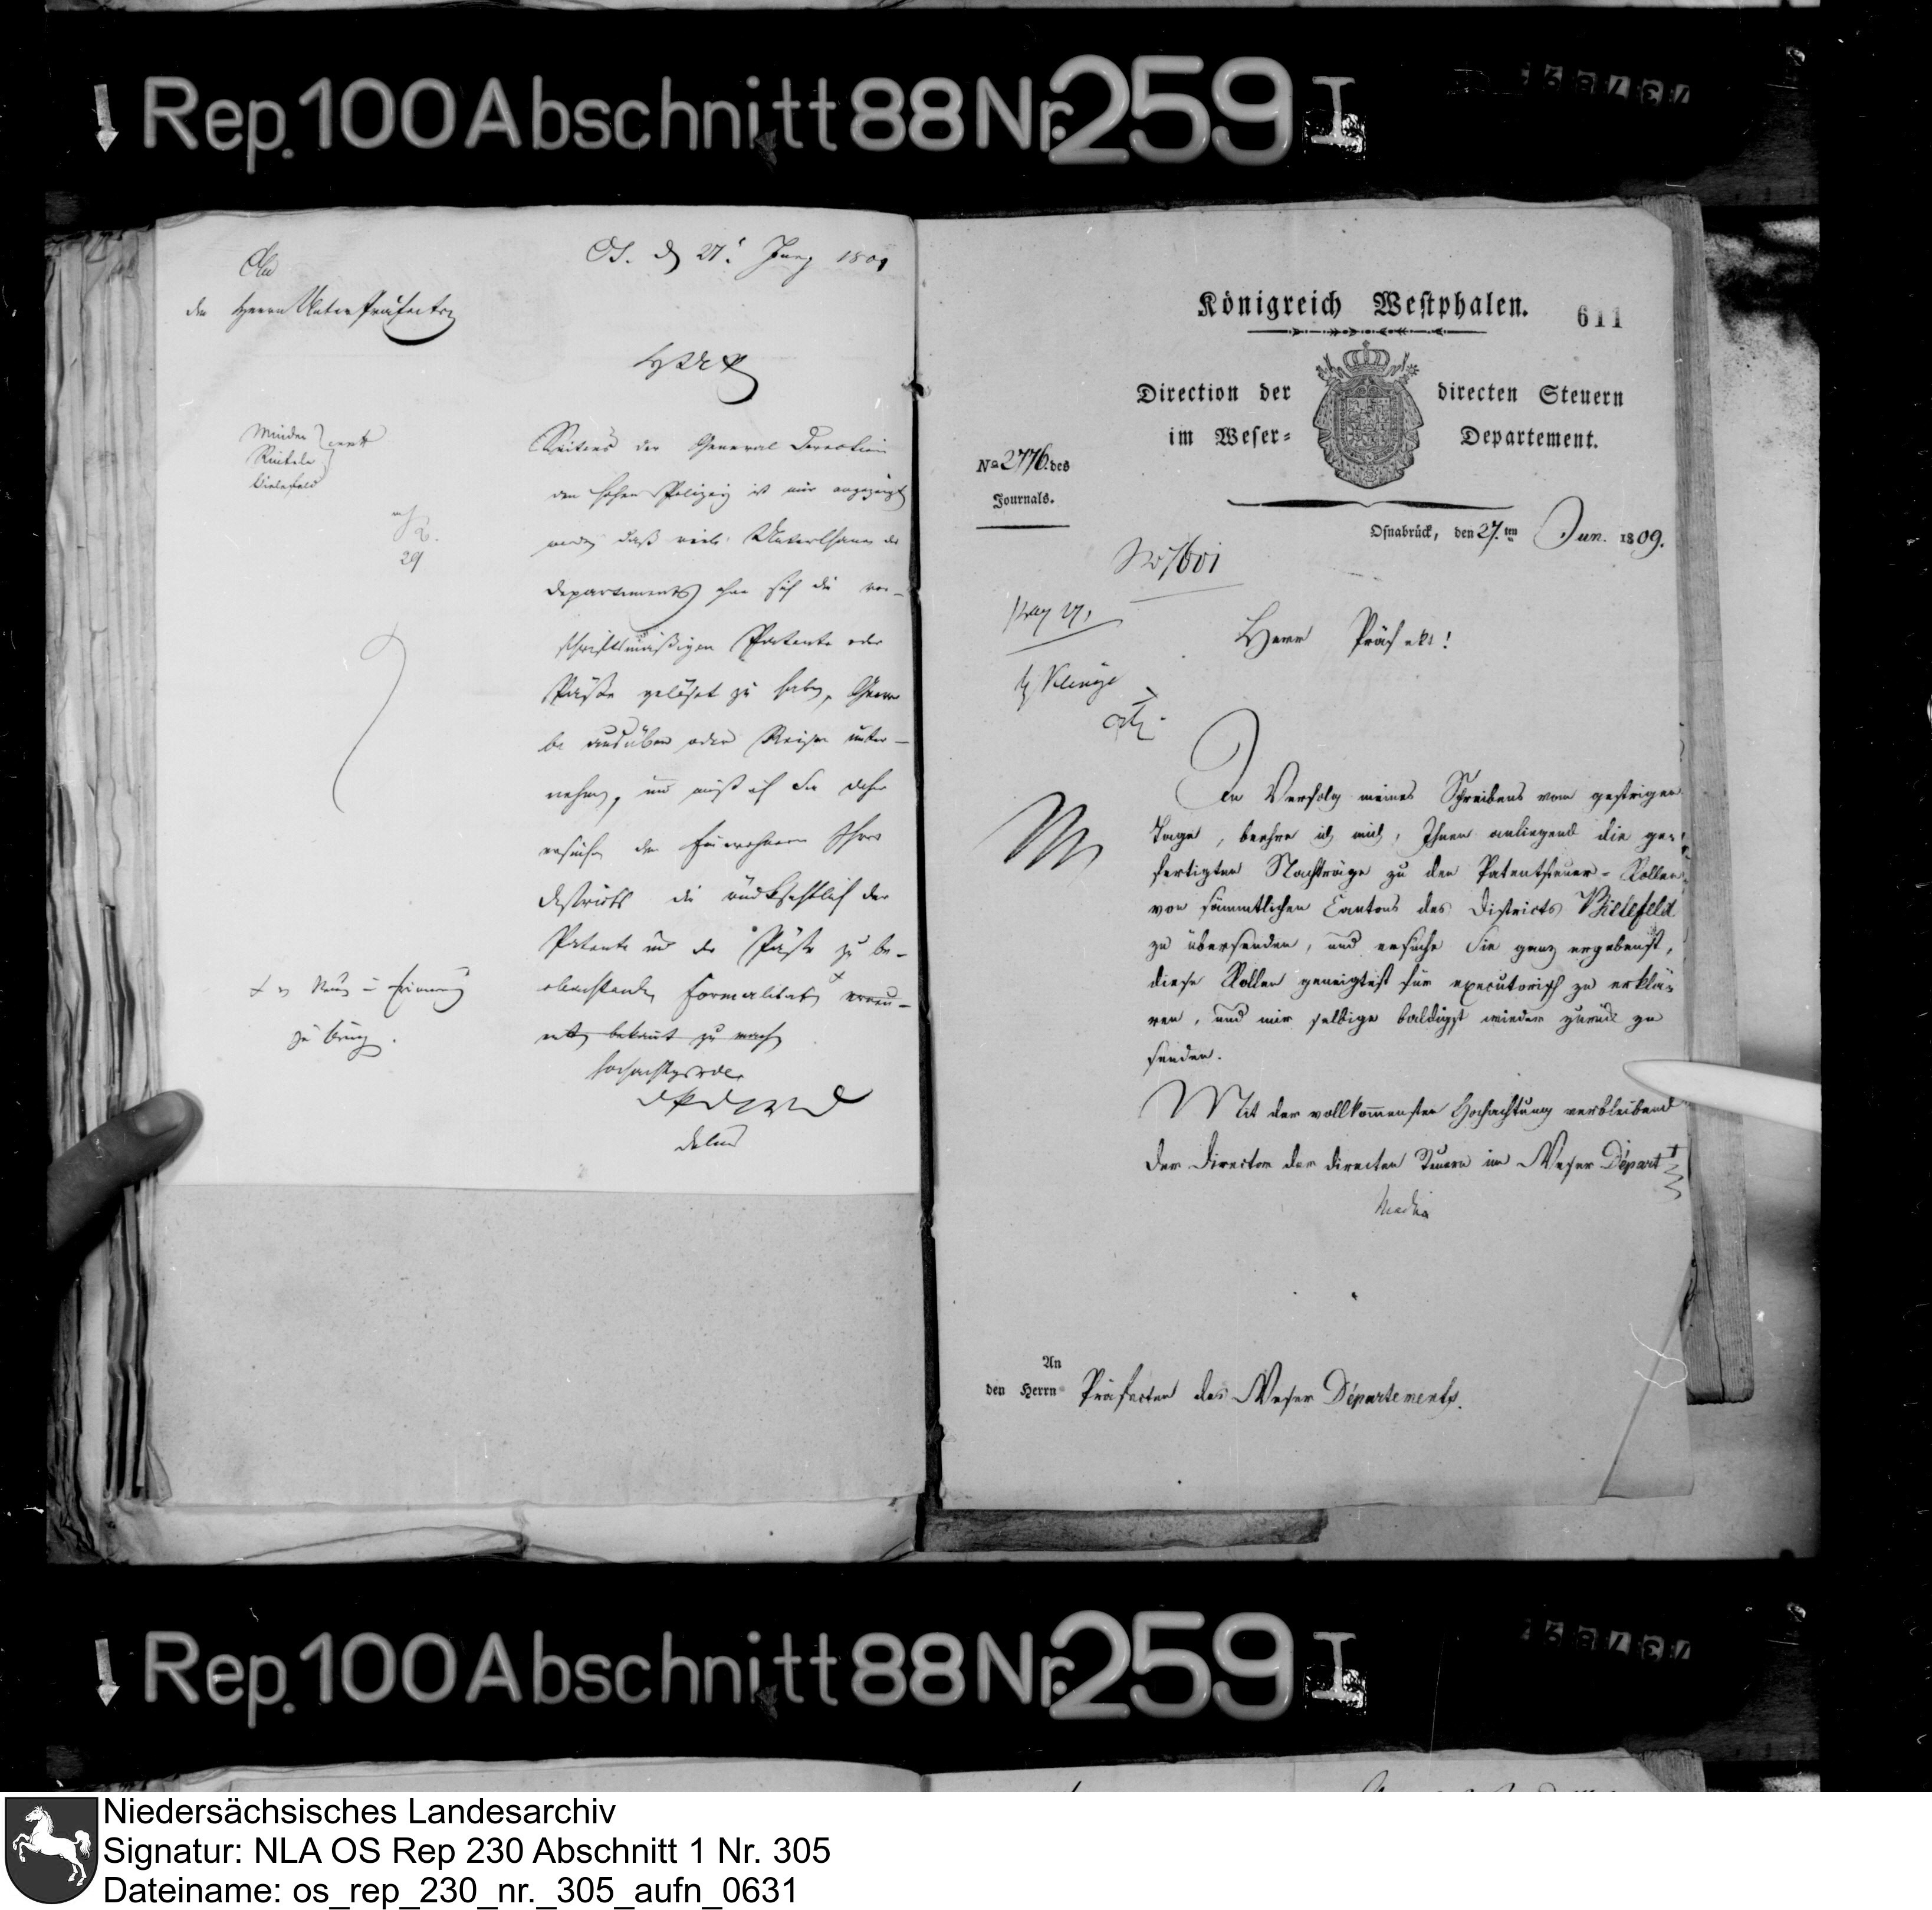 Rep. 100 Abschnitt 88 Nr. 259 I
An
den Herrn Unter Präfecten
27. Juny 1809
Minden
Rinteln
Bielefeld
29
Seitens der General Direction
der hohen Polizey ist mir angezeigt
worden daß viele Unterthanen des
departements ohne sich die vor-
schriftsmäßigen Patente oder
Päße gelöset zu haben, Gewer-
be ausüben oder Reisen unter-
nehmen, und muß ich Sie daher
ersuchen den Einwohnern Ihres
districts die rücksichtlich der
Patente und der Päße zu be-
obachtenden Formalitäten
bekannt zu machen
zu bringen.
Königreich Westphalen.
611
Direction der directen Steuern
im Weser-Departement.
No 2776 des
Journals.
Osnabrück, den 27.ten Jun. 1809.
Herr Präfekt!
In Verfolg meines Schreibens vom gestrigen
Tage, beehre ich mich, Ihnen anliegend die ge-
fertigten Nachträge zu den Patentsteuer-Rollen
von sämmtlichen Cantons des Districts Bielefeld
zu übersenden, und ersuche Sie ganz ergebenst,
diese Rollen geneigtest für executorisch zu erklä-
ren, und mir selbige baldigst wieder zurück zu
senden.
Mit der vollkommensten Hochachtung verbleibend
der Director der directen Steuern im Weser Départ
An
den Herrn Präfecten des Weser Départements.
Rep. 100 Abschnitt 88 Nr. 259 I
Niedersächsisches Landesarchiv
Signatur: NLA OS Rep 230 Abschnitt 1 Nr. 305
Dateiname: os_rep_230_nr._305_aufn_0631